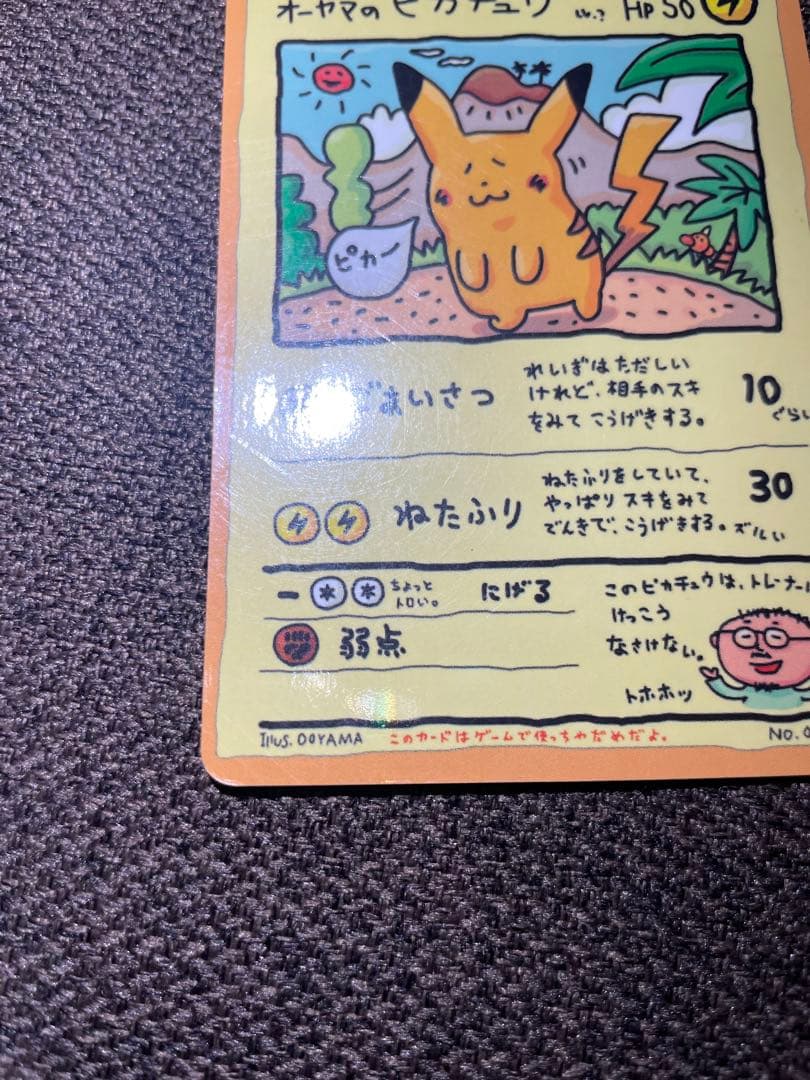 オーヤマのピカチュウ Lv.? HP 50
ピカー
ごあいさつ
れいぎはただしい
けれど、相手のスキ
をみてこうげきする。
10
ぐらい
ねたふり
ねたふりをしていて、
やっぱりスキをみて
でんきで、こうげきする。ズルい
30
ー ちょっと
トロい。
にげる
弱点
このピカチュウは、トレーナー
けっこう
なさけない。
トホホッ
Illus. OOYAMA このカードはゲームで使っちゃだめだよ。 NO.